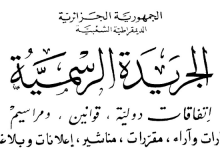 الجمهورية الجزائرية
الديمقراطية الشعبية
الجريدة الرسمية
إتفاقات دولية ، قوانين ، ومراسيم
رات وآراء ، مقررات ، مناشير ، إعلانات وبلاغ